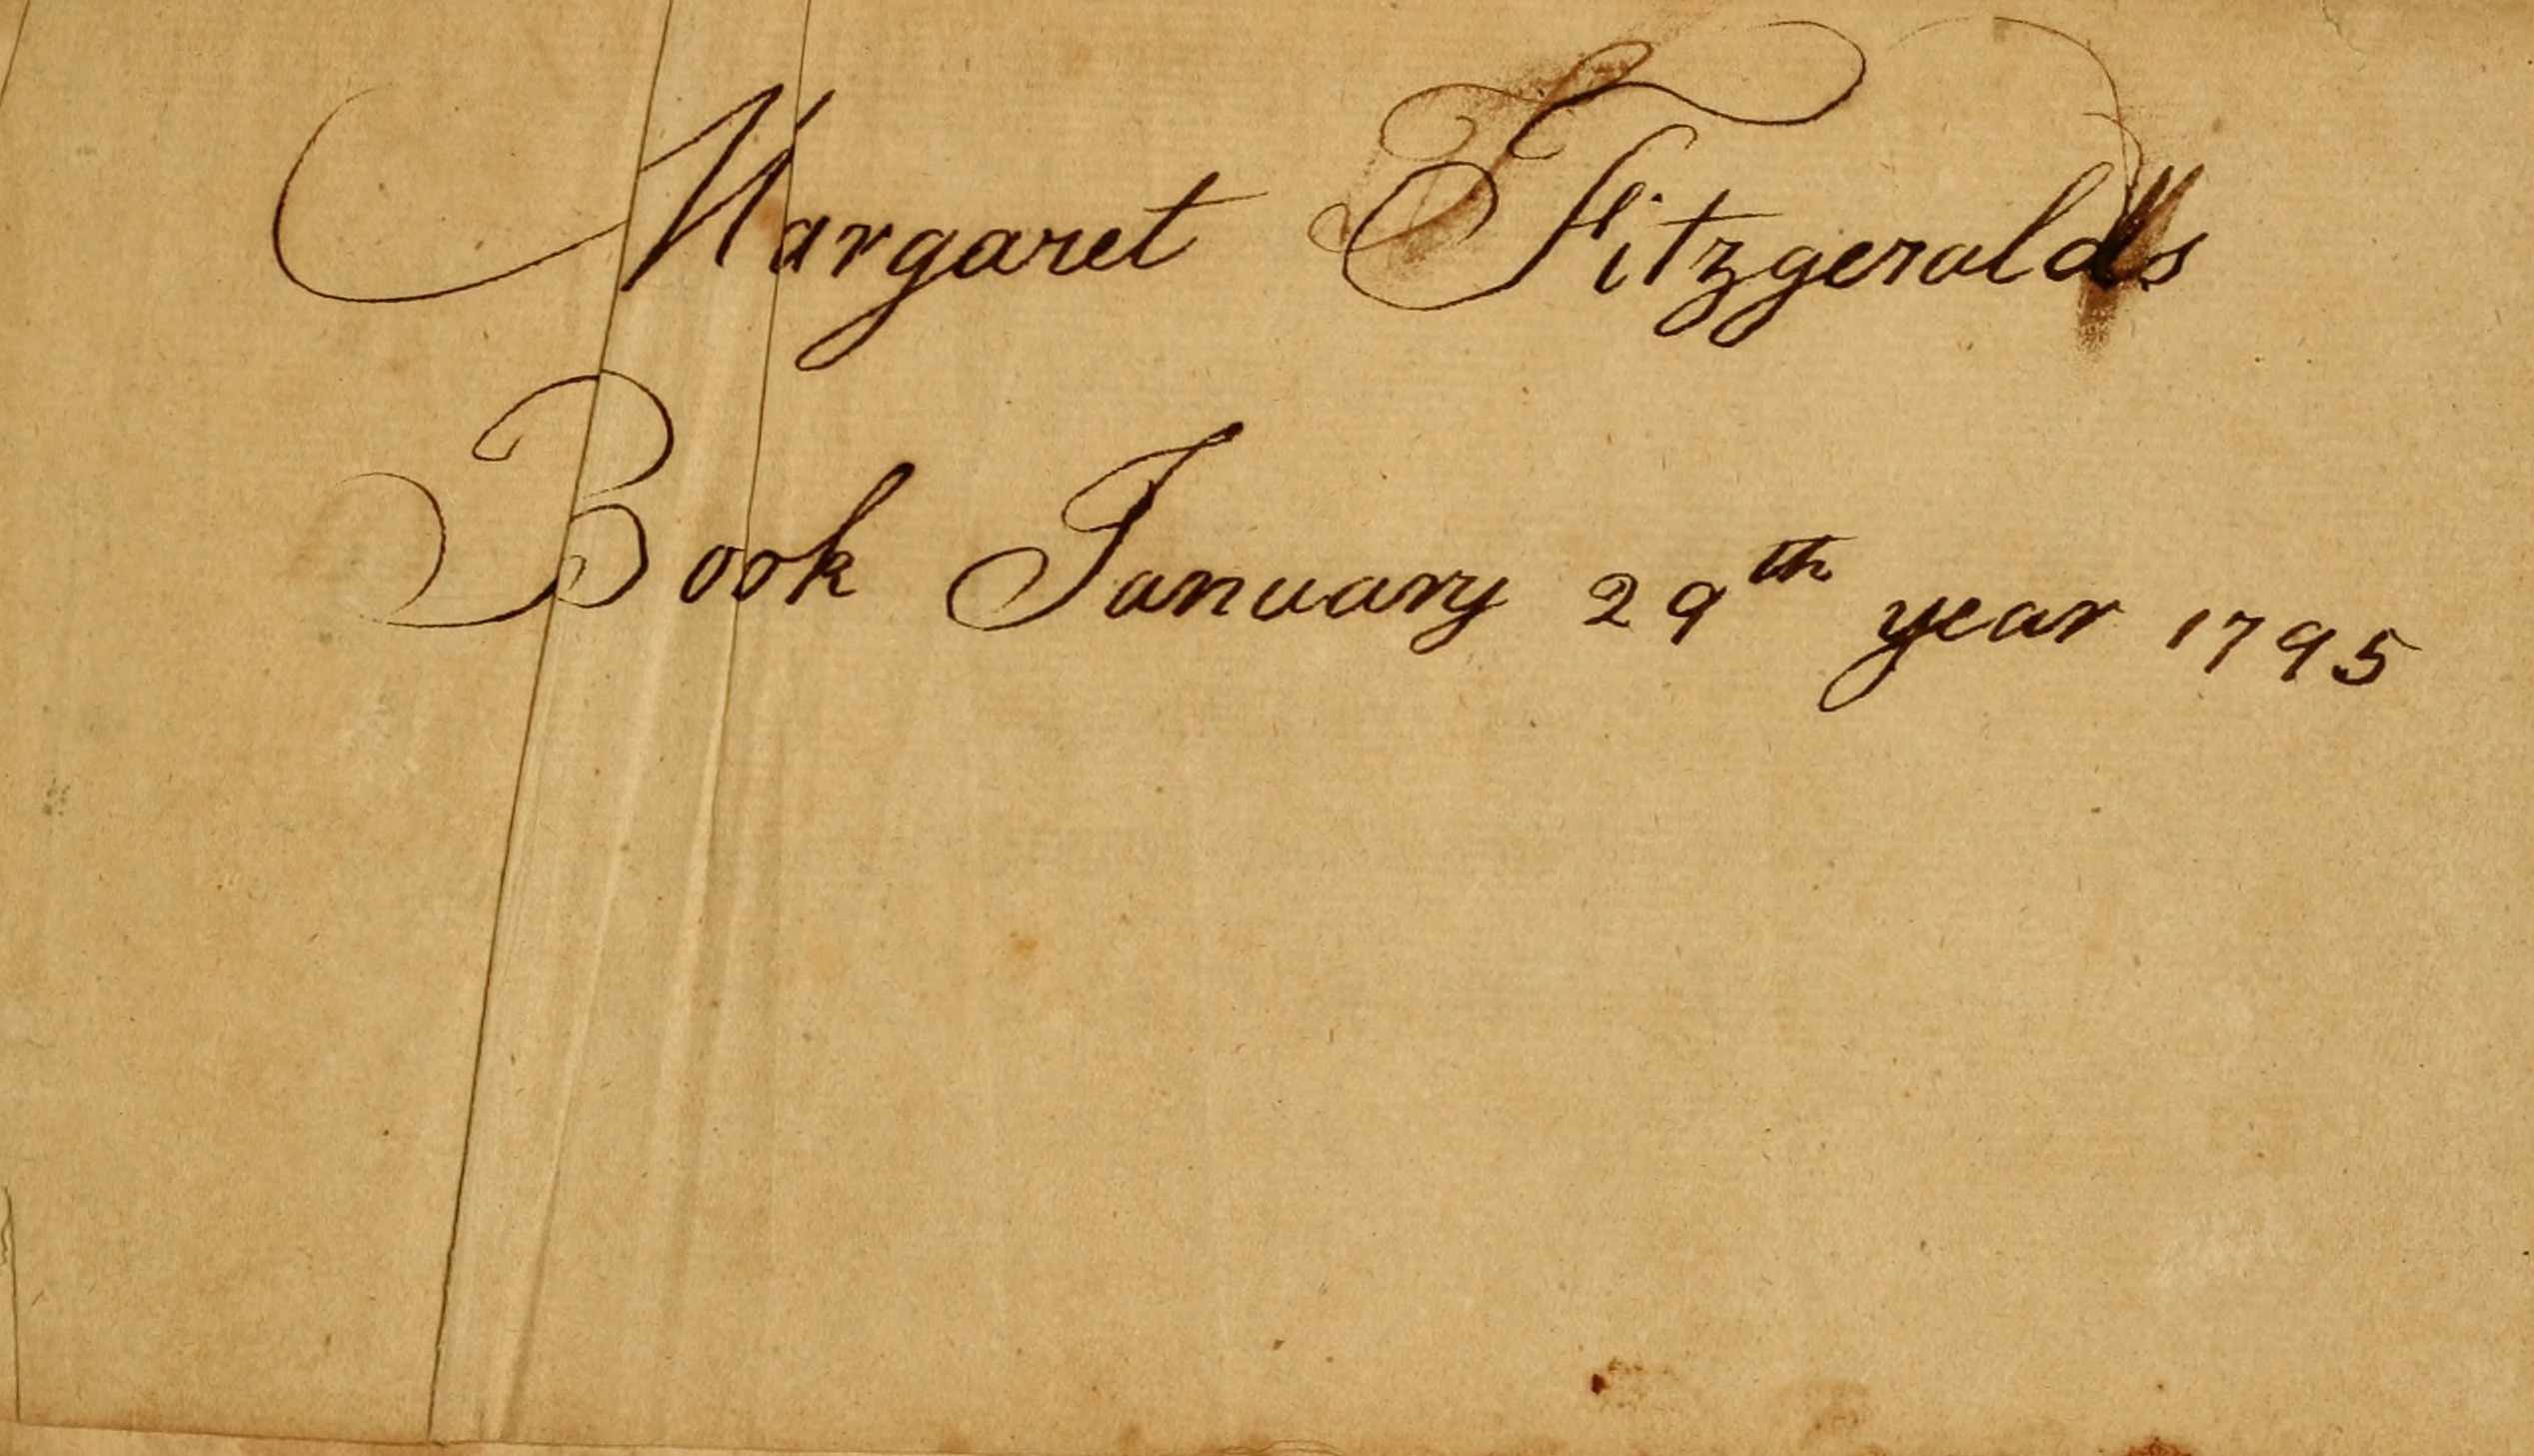 Margaret Fitzgerald's
Book January 29th year 1795